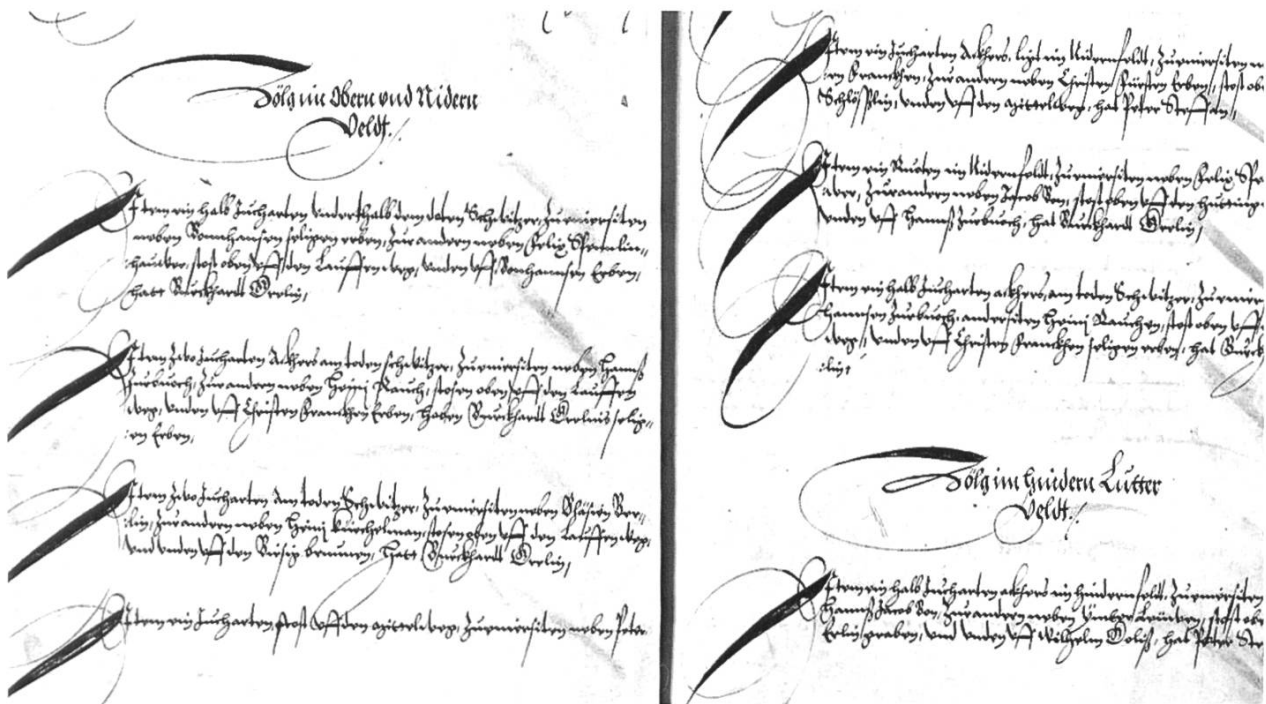 Völg im Obern vnd Nidern
Veldt.
Item ein halb Jucharten vnderhalb dem doten Schwitzer, zu einer siten
neben Conhansen seligen erben, zur andern neben Felix
stost oben vff den Lauffen weg, vnden vff Conhannsen Erben,
hatt Burckhardt Oerlin,
Item zwo Jucharten Ackhers am toden schwitzer, zu einer siten neben Hannß
Zurbuoch, zur andern neben Heinj Rauch, stosen oben vff den Lauffen
weg, vnden vff Christen Franckhen Erben, haben Burckhardt Oerlins selig=
en Erben,
Item zwo Jucharten Am toden Schwitzer, zu einer siten neben Bläsien Oer=
lin, zur andern neben Heinj Kuechelman, stosen oben vff den Lauffen weg,
vnd vnden vff den brunnen, hatt Burckhardt Oerlin,
Item ein Jucharten stost vff den Mittelweg, zu einer siten neben Peter
Item ein Jucharten Ackhers, ligt im Niderenfeldt, zu einer siten n
en Franckhen, zur andern neben Christen Fürsten Erben, stost obe
Schlößlin, vnden vff den Mittelweg, hat Peter Steffan,
Item ein Ruoten im Niderenfeldt, zu einer siten neben Felix Spe
zur andern neben Jacob Von, stost oben vff den
vnden vff Hannß Zurbuoch, hat Burckhardt Oerlin,
Item ein halb Jucharten ackhers, am toden Schwitzer, zu einer
hannsen Zurbuoch, andersiten Heinj Rauchen, stost oben vff
weg, vnnden vff Christen Franckhen seligen erben, hat Burck
lin,
Völg im hindern Lutter
Veldt.
Item ein halb Jucharten ackhers im hinderenfeldt, zu einer siten
Hannß Jacob Von, zur andern neben stost obe
graben, vnd vnden vff Wilhelm hat Peter Ste